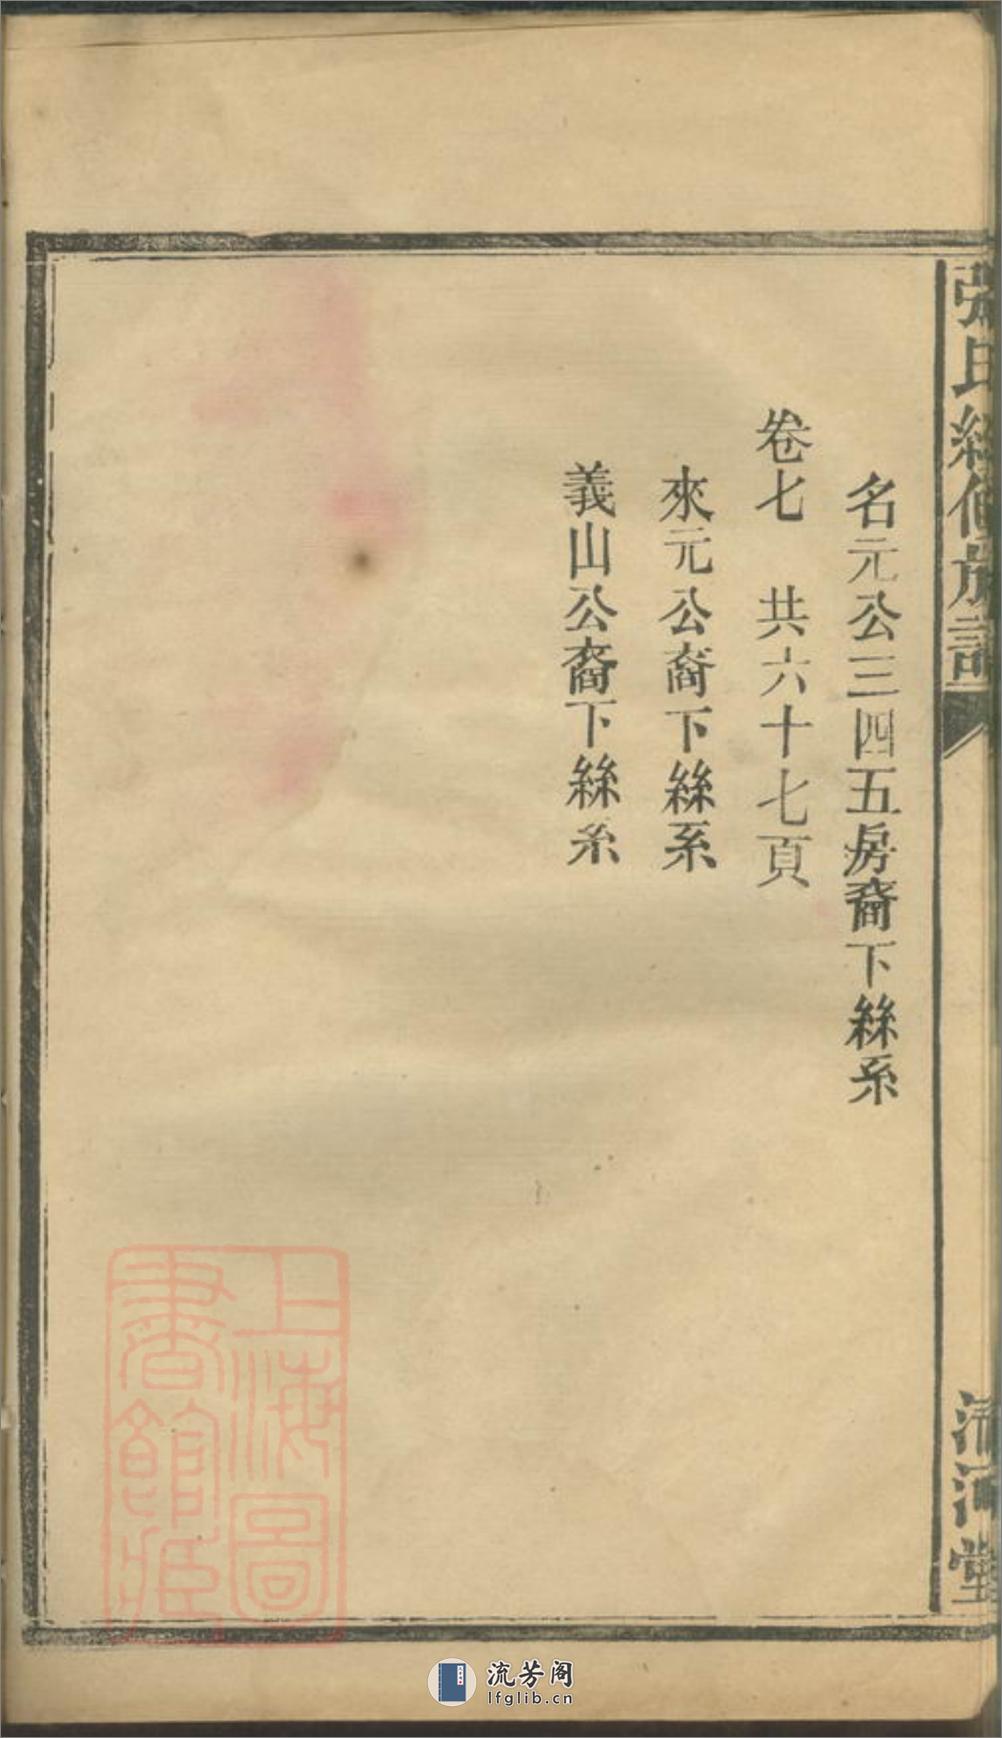 張氏續修族譜
清河堂
名元公三四五房裔下絲系
卷七　共六十七頁
來元公裔下絲系
義山公裔下絲系
上海圖書館藏
流芳阁
lfglib.cn